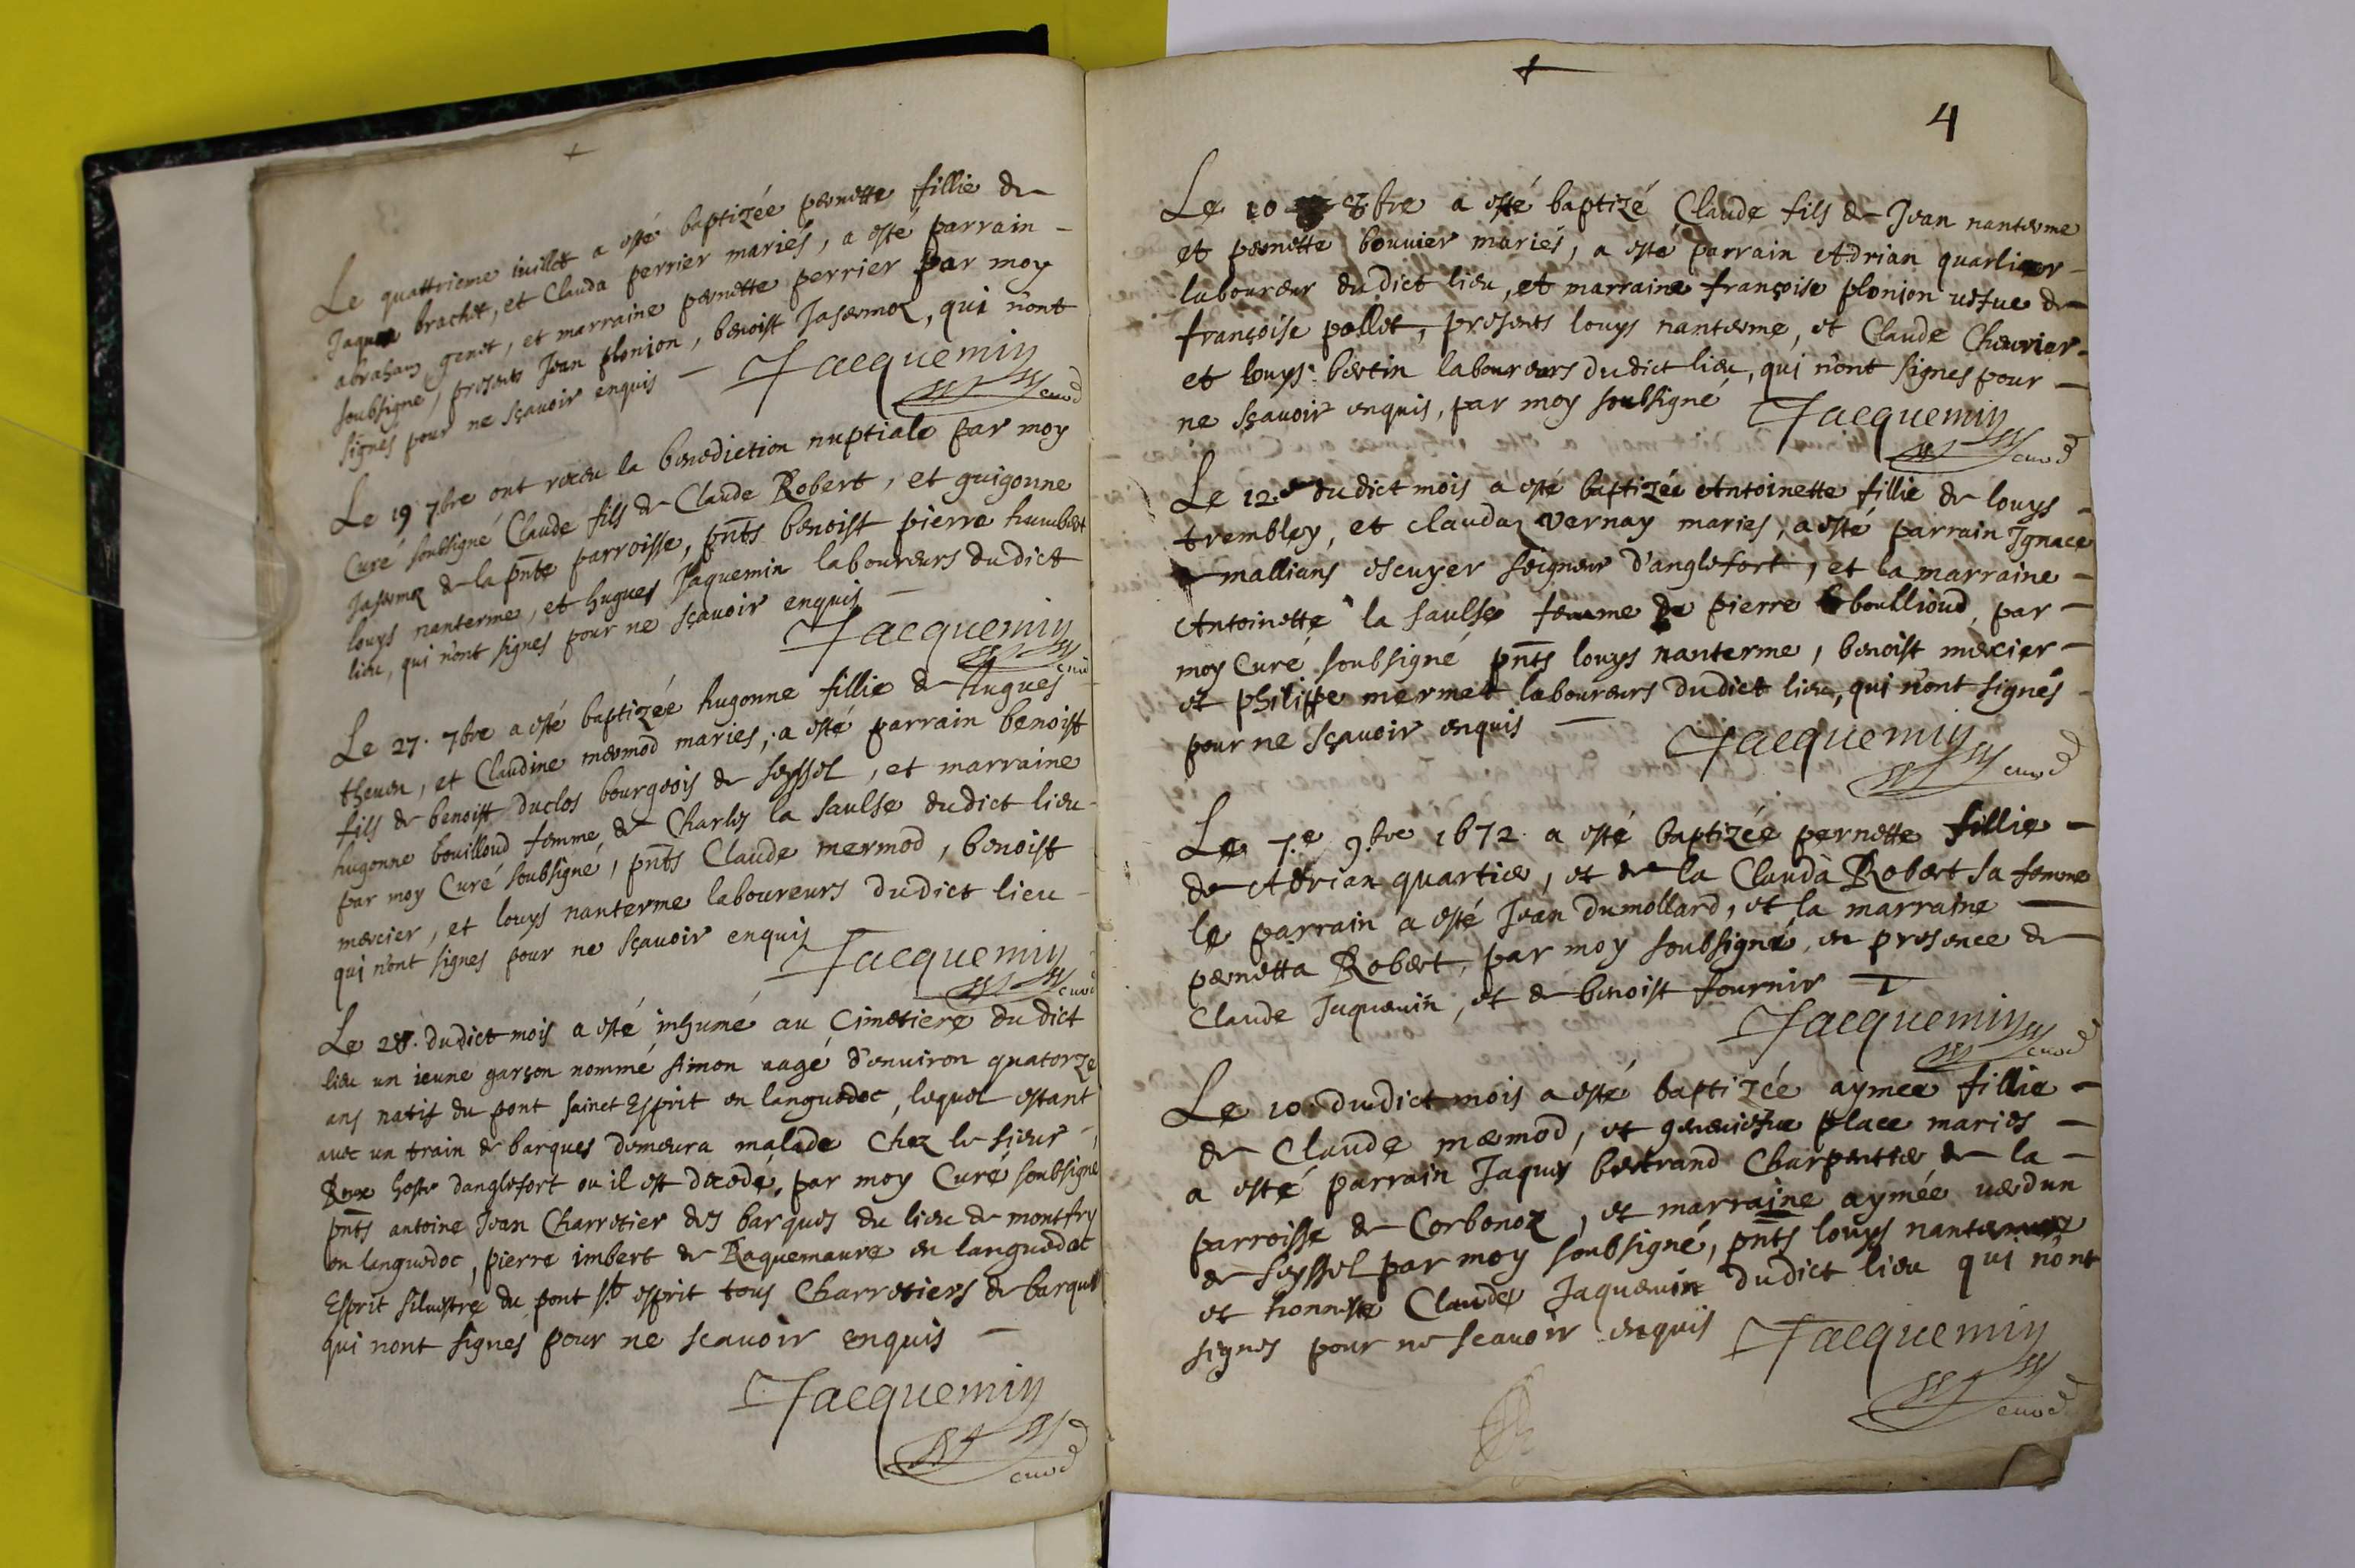 Le quattrieme iuillet a esté baptizée pernette fillie de
Jaques brachet, et Clauda perrier mariés, a esté parrain
abraham genet, et marraine pernette perrier par moy
soubsigné, presents Jean plonion, benoist Jasermoz, qui n'ont
signés pour ne sçavoir enquis
Jacquemin
curé
Le 19 7bre ont receu la benediction nuptiale par moy
Curé soubsigné Claude fils de Claude Robert, et guigonne
Jasermoz de la pnte parroisse, pnts benoist pierre humbert
louys nanterme, et hugues Jaquemin laboureurs dudict
lieu, qui n'ont signes pour ne sçavoir enquis
Jacquemin
curé
Le 27. 7bre a esté baptizée hugonne fillie de hugues
theuen, et Claudine mermod maries, a esté parrain benoist
fils de benoist duclos bourgeois de seyssel, et marraine
hugonne bouilloud femme de Charles la saulse dudict lieu
par moy Curé soubsigné, pnts Claude mermod, benoist
mercier, et louys nanterme laboureurs dudict lieu
qui n'ont signes pour ne sçavoir enquis
Jacquemin
curé
Le 28. dudict mois a esté inhumé au Cimetiere dudict
lieu un ieune garson nommé simon aagé d'enuiron quatorze
ans natif du pont sainct Esprit en languedoc, lequel estant
auec un train de barques demeura malade Chez le sieur
Roux hoste danglefort ou il est decedé, par moy Curé soubsigné
pnts antoine Jean Charretier des barques du lieu de montfry
en languedoc, pierre imbert de Raquemaure en languedoc
Esprit siluestre du pont st esprit tous Charretiers de barques
qui nont signés pour ne scauoir enquis
Jacquemin
curé
4
Le 10 8bre a esté baptizé Claude fils de Jean nanterme
et pernette bouuier mariés, a esté parrain Adrian quartier
laboureur dudict lieu, et marraine françoise plonion uefue de
françoise pollet, presents louys nanterme, et Claude Cheurier
et louys bertin laboureurs dudict lieu, qui n'ont signes pour
ne sçavoir enquis, par moy soubsigné
Jacquemin
curé
Le 12.e dudict mois a esté baptizée Antoinette fillie de louys
trembley, et clauda vernay maries, a esté parrain Ignace
de mallians escuyer seigneur d'anglefort, et la marraine
Antoinette la saulse femme de pierre boullioud, par
moy Curé soubsigné pnts louys nanterme, benoist mercier
et philippe mermet laboureurs dudict lieu, qui n'ont signés
pour ne sçavoir enquis
Jacquemin
curé
Le 7.e 9.bre 1672. a esté baptizée pernette fillie
de Adrian quartier, et de la Clauda Robert sa femme
le parrain a esté Jean dumollard, et la marraine
pernetta Robert, par moy soubsigné, en presence de
Claude Jaquemin, et de benoist fournir
Jacquemin
curé
Le 10. dudict mois a esté baptizée aymee fillie
de Claude mermod, et geneuiefue place maries
a esté parrain Jaques bertrand Charpentier de la
parroisse de Corbonoz, et marraine aymée uerdun
de seyssel par moy soubsigné, pnts louys nanterme
et honneste Claude Jaquemin dudict lieu qui n'ont
signes pour ne scauoir enquis
Jacquemin
curé